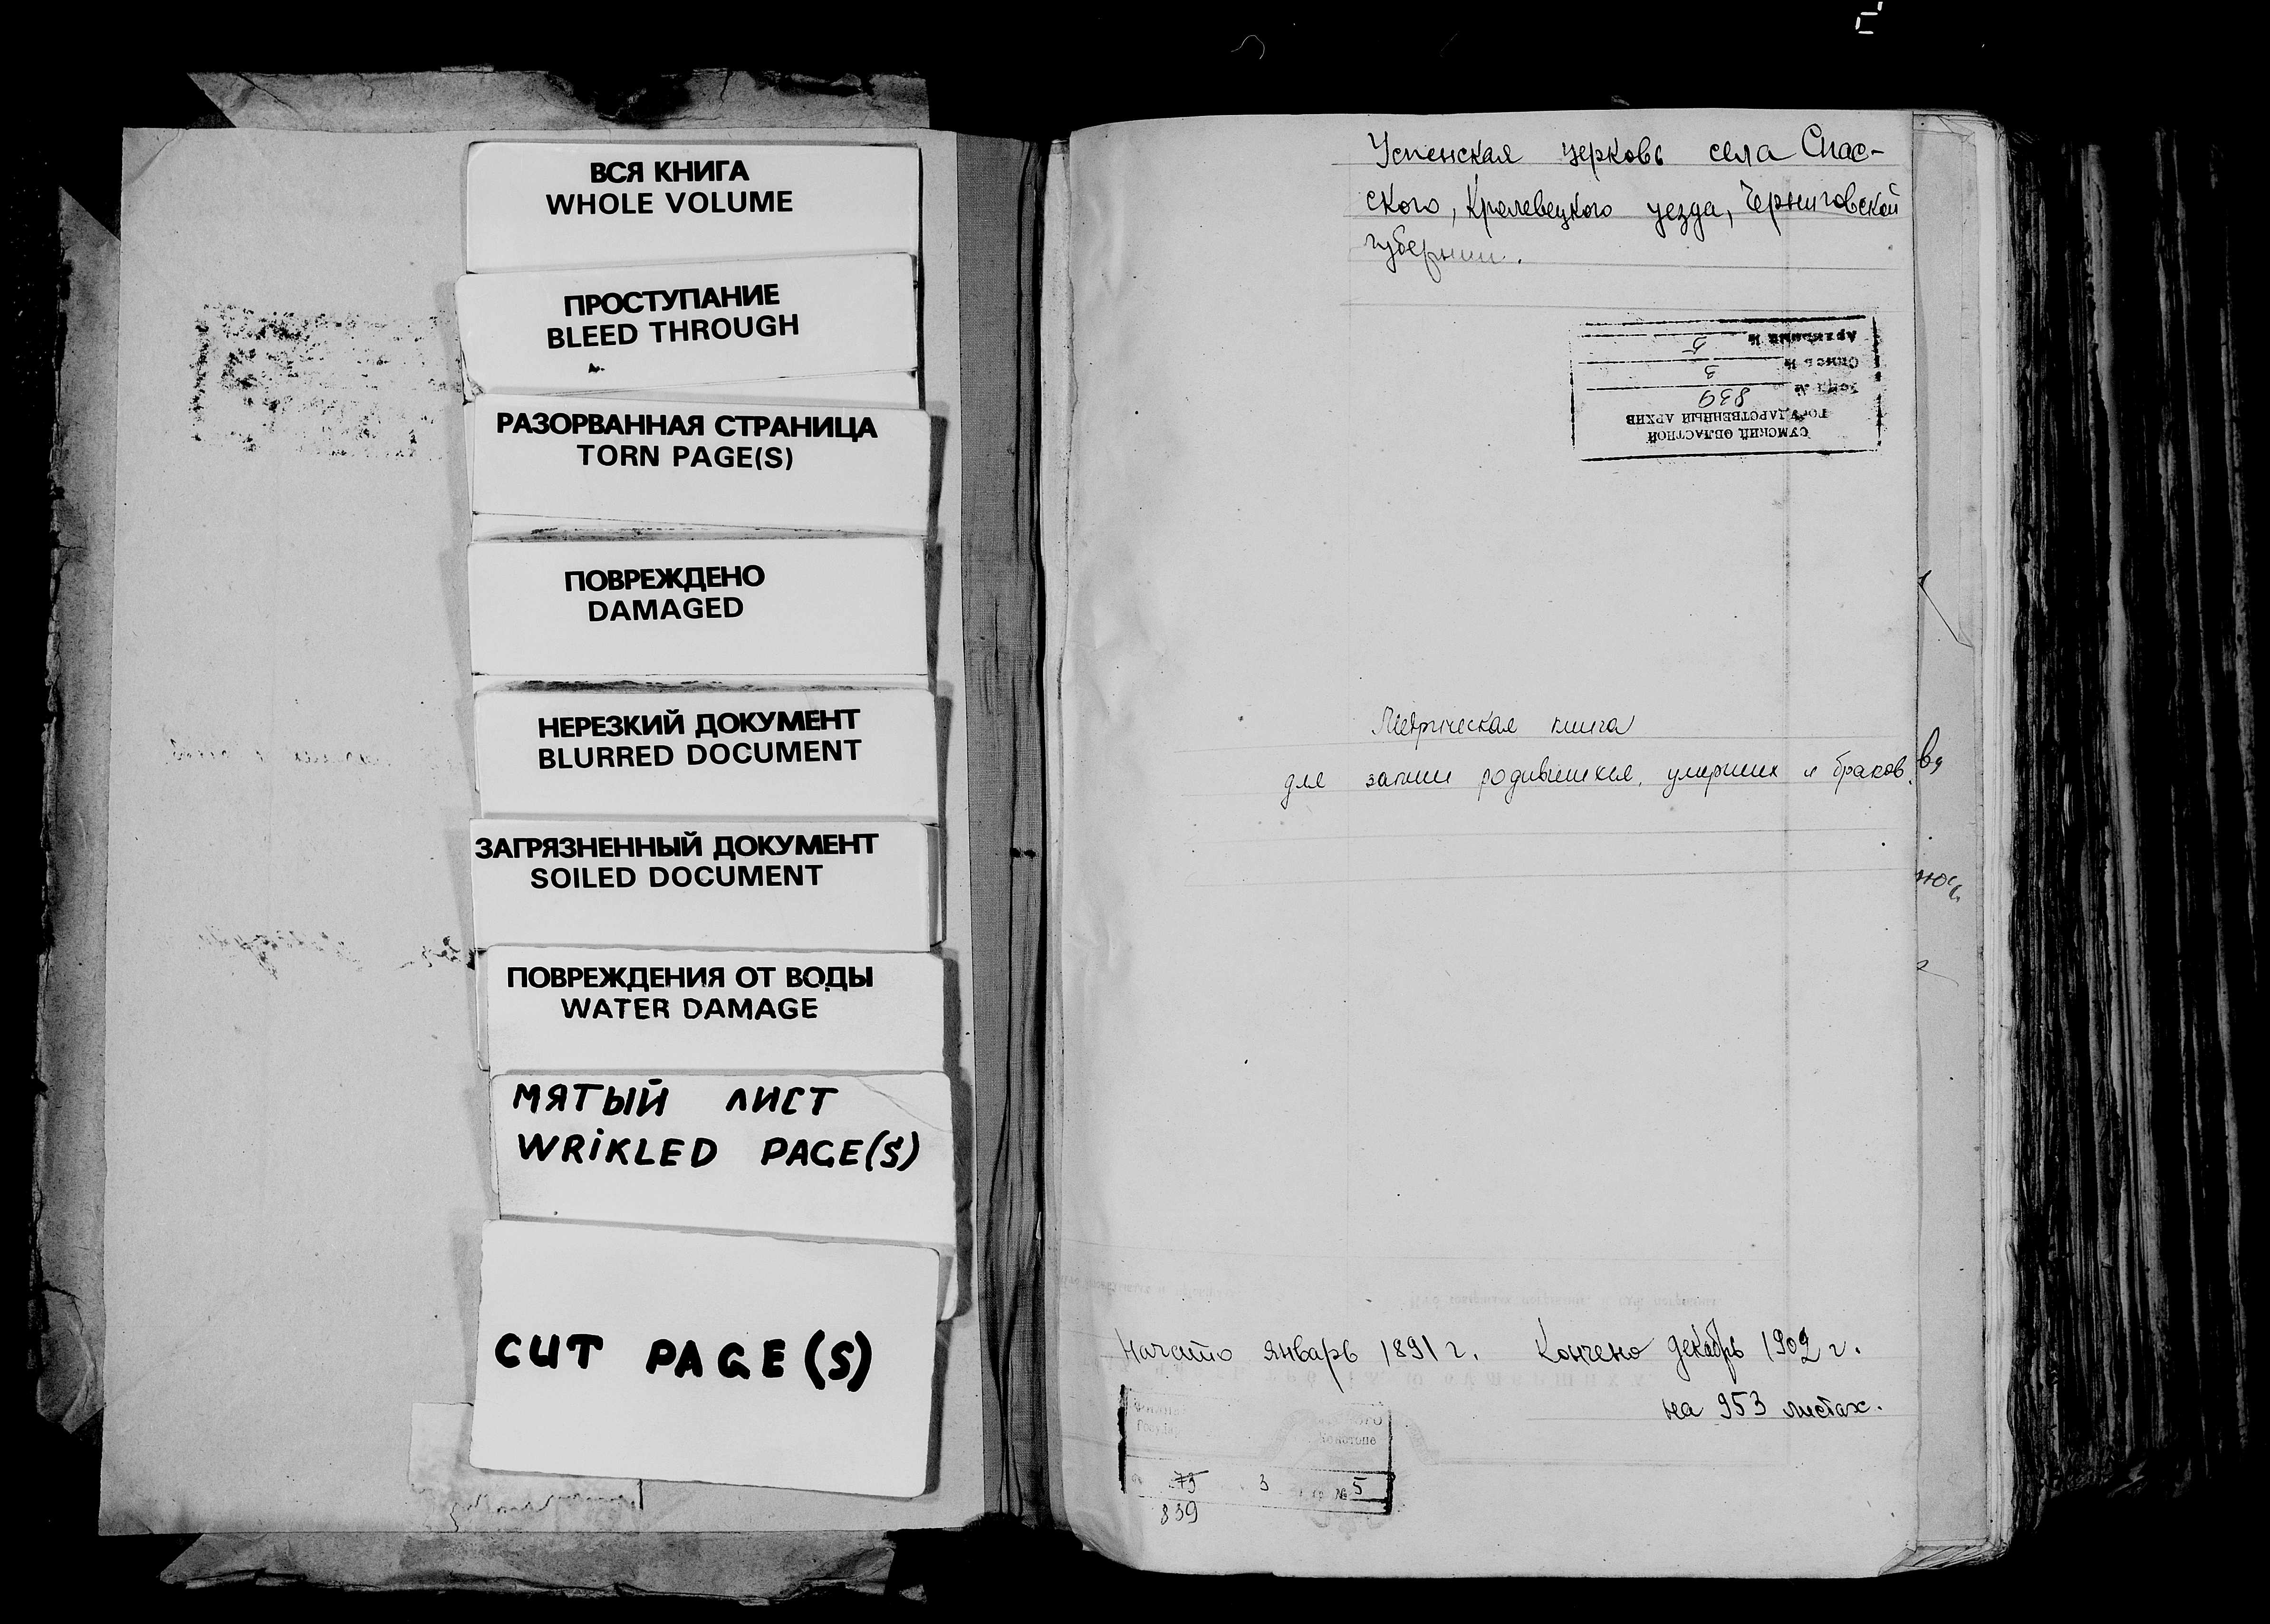 ВСЯ КНИГА
WHOLE VOLUME
ПРОСТУПАНИЕ
BLEED THROUGH
РАЗОРВАННАЯ СТРАНИЦА
TORN PAGE(S)
ПОВРЕЖДЕНО
DAMAGED
НЕРЕЗКИЙ ДОКУМЕНТ
BLURRED DOCUMENT
ЗАГРЯЗНЕННЫЙ ДОКУМЕНТ
SOILED DOCUMENT
ПОВРЕЖДЕНИЯ ОТ ВОДЫ
WATER DAMAGE
МЯТЫЙ ЛИСТ
WRIKLED PAGE(S)
CUT PAGE(S)
Успенская церковь села Спас-
ского, Кролевецкого уезда, Черниговской
губернии.
СУМСКИЙ ОБЛАСТНОЙ
ГОСУДАРСТВЕННЫЙ АРХИВ
Фонд № 839
Опись № 3
5
Метрическая книга
для записи родившихся, умерших и браков.
Начато январь 1891 г. Кончено декабрь 1902 г.
на 953 листах.
79 3 № 5
839